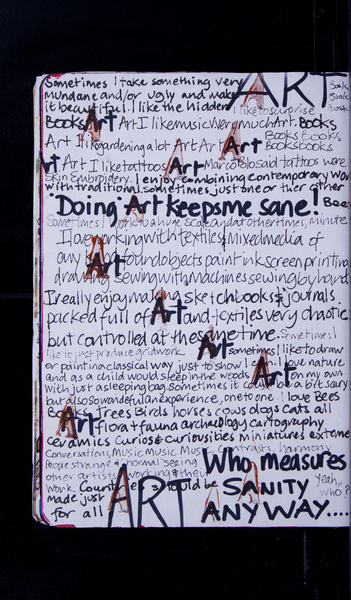 Sometimes I take something very
mundane and/or ugly and make ART
it beautiful. I like the hidden I like to surprise
Books Art Art I like music very much Art. Books
Art I like gardening a lot Art Art Art Books Books
Books books
Art Art I like tattoos Art Marco Polo said tattoos were
Skin Embroidery. I enjoy combining contemporary
with traditional. sometimes just one or ther other
"Doing Art keeps me sane! Bee
Sometimes I work to a huge scale and at other times, minute
I love working with textiles & mixed media of
any Art found objects paint ink screen printing
drawing sewing with machines sewing by hand
I really enjoy making sketchbooks & journals.
packed full of Art and textiles very chaotic
but controlled at the same time. Sometimes I
like to just produce grid work Art sometimes I like to draw
or paint in a classical way just to show I can. I love nature
and as a child would sleep in the woods Art on my own
with just a sleeping bag Sometimes it could be a bit scary
but also so wonderful an experience, one to one. I love Bees
Books Trees Birds horses cows dogs Cats all
Art flora & fauna archeology cartography
ceramics Curios & Curiosities miniatures extreme
Conversations, Music Music Music Contrasts, harmony
People strange & normal seeing Who measures
other artists working & their
work. Countries should be SANITY Yeah,
made just ART who?
for all ANY WAY....